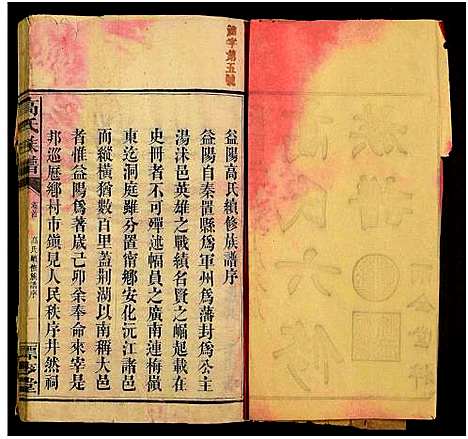 益陽高氏續修族譜序
益陽自秦置縣爲軍州爲藩封爲公主
湯沐邑英雄之戰績名賢之崛起載在
史冊者不可殫述幅員之廣南連梅嶺
東迄洞庭雖分置甯鄉安化沅江諸邑
而縱橫猶數百里蓋荆湖以南稱大邑
者惟益陽爲著歲己卯余奉命來宰是
邦巡歷鄉村市鎭見人民秩序井然祠
高氏族譜
高氏續修族譜序
族譜
高氏六修